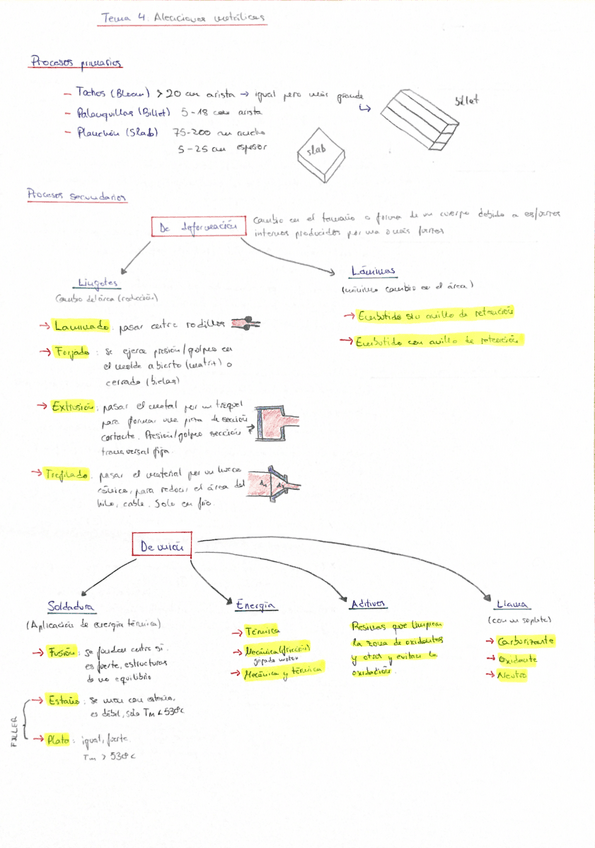 Tema 4. Aleaciones metálicas
Procesos primarios
- Tochos (Bloom) > 20 cm arista → igual pero más grande
- Palanquillas (Billet) 5-18 cm arista
- Planchón (Slab) 75-200 cm ancho
5-25 cm espesor
billet
slab
Procesos secundarios
De deformación
Cambio en el tamaño o forma de un cuerpo debido a esfuerzos
internos producidos por una o más fuerzas
Lingotes
Cambio del área (reducción)
→ Laminado: pasar entre rodillos
→ Forjado: se ejerce presión/golpes en
el molde abierto (matriz) o
cerrado (bielas)
→ Extrusión: pasar el metal por un troquel
para formar una pieza de sección
constante. Presión/golpeo sección
transversal fija.
→ Trefilado: pasar el material por un hueco
cónico, para reducir el área del
hilo, cable. Solo en frío.
Láminas
(mínimo cambio en el área)
→ Embutido sin anillo de retención
→ Embutido con anillo de retención
De unión
Soldadura
(Aplicación de energía térmica)
→ Fusión: se funden entre sí
es fuerte, estructuras
de no equilibrio
FILLER
→ Estaño: se unen con estaño,
es débil, sólo Tm < 530ºC
→ Plata: igual, fuerte
Tm > 530ºC
Energía
→ Térmica
→ Mecánica (fricción)
→ Mecánica y térmica
Aditivos
Resinas que limpian
la zona de oxidantes
y otros y evitan la
oxidación.
Llama
(con un soplete)
→ Carburizante
→ Oxidante
→ Neutra